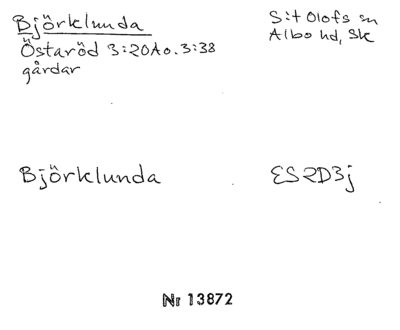 Björklunda
Östaröd 3:20 Ao. 3:38
gårdar
S:t Olofs sn
Albo hd, Sk
Björklunda
ES2D3j
Nr 13872